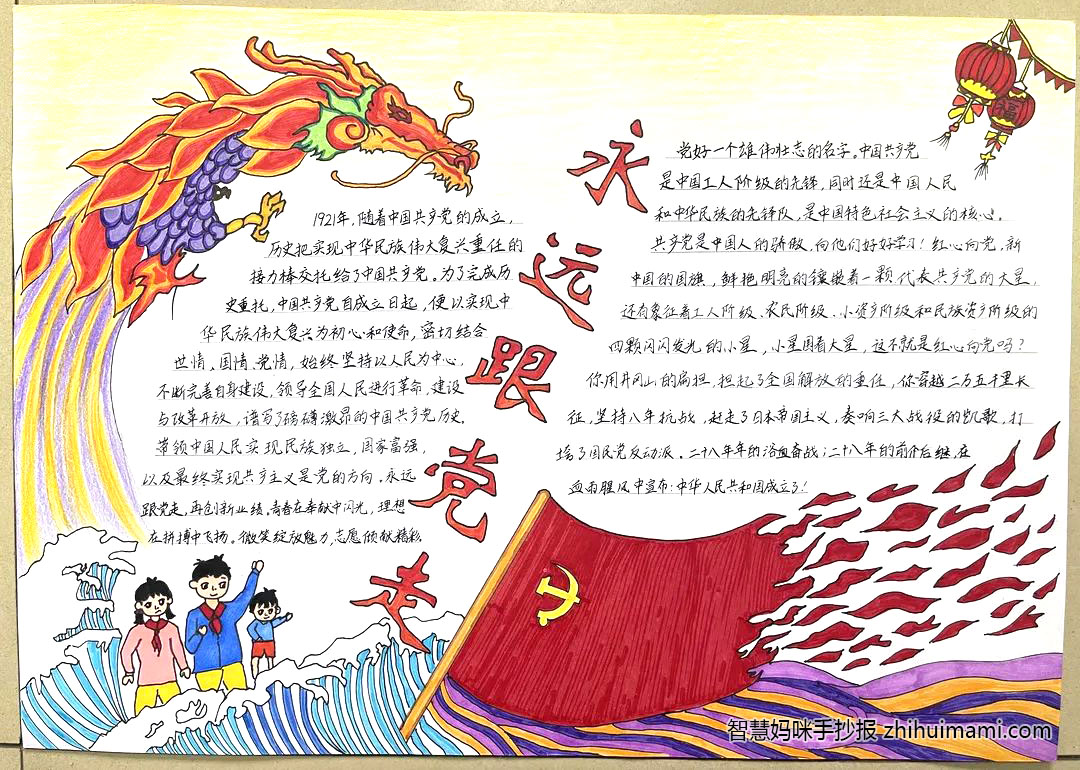 永远跟党走
1921年，随着中国共产党的成立，
历史把实现中华民族伟大复兴重任的
接力棒交托给了中国共产党。为了完成历
史重托，中国共产党自成立日起，便以实现中
华民族伟大复兴为初心和使命，密切结合
世情、国情、党情，始终坚持以人民为中心，
不断完善自身建设，领导全国人民进行革命、建设
与改革开放，谱写了磅礴激昂的中国共产党历史。
带领中国人民实现民族独立、国家富强，
以及最终实现共产主义是党的方向。永远
跟党走，再创新业绩。青春在奉献中闪光，理想
在拼搏中飞扬。微笑绽放魅力，志愿倾献精彩。
党好一个雄伟壮志的名字。中国共产党
是中国工人阶级的先锋，同时还是中国人民
和中华民族的先锋队，是中国特色社会主义的核心。
共产党是中国人的骄傲，向他们好好学习！红心向党，新
中国的国旗，鲜艳明亮的镶嵌着一颗代表共产党的大星，
还有象征着工人阶级、农民阶级、小资产阶级和民族资产阶级的
四颗闪闪发光的小星，小星围着大星，这不就是红心向党吗？
你用井冈山的扁担，担起了全国解放的重任，你穿越二万五千里长
征，坚持八年抗战，赶走了日本帝国主义，奏响三大战役的凯歌，打
垮了国民党反动派。二十八年年的浴血奋战；二十八年的前仆后继，在
血雨腥风中宣布：中华人民共和国成立了！
福
智慧妈咪手抄报 zhihuimami.com